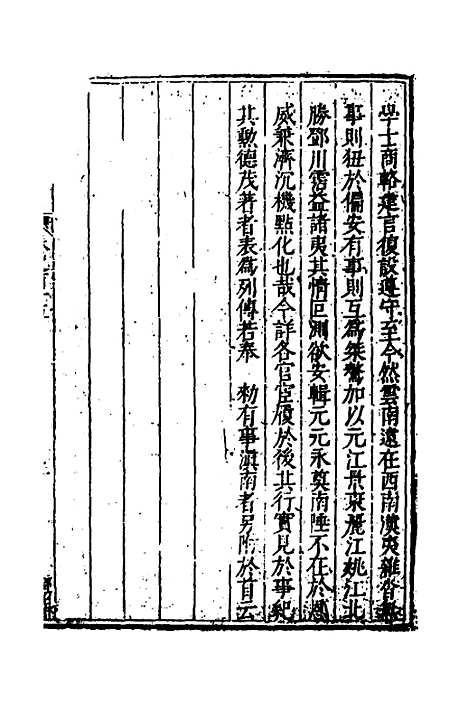 學士商輅建言復設遵守至今然雲南遠在西南漢夷雜沓無
事則狃於偏安有事則互爲桀驁加以元江景東麗江姚江北
勝鄧川霑益諸夷其情叵測欲安輯元元永奠南陲不在於恩
威乘濟沉機點化也哉今詳各官宦履於後其行實見於事紀
其勳德茂著者表爲列傳若奉 勑有事滇南者另附於首云